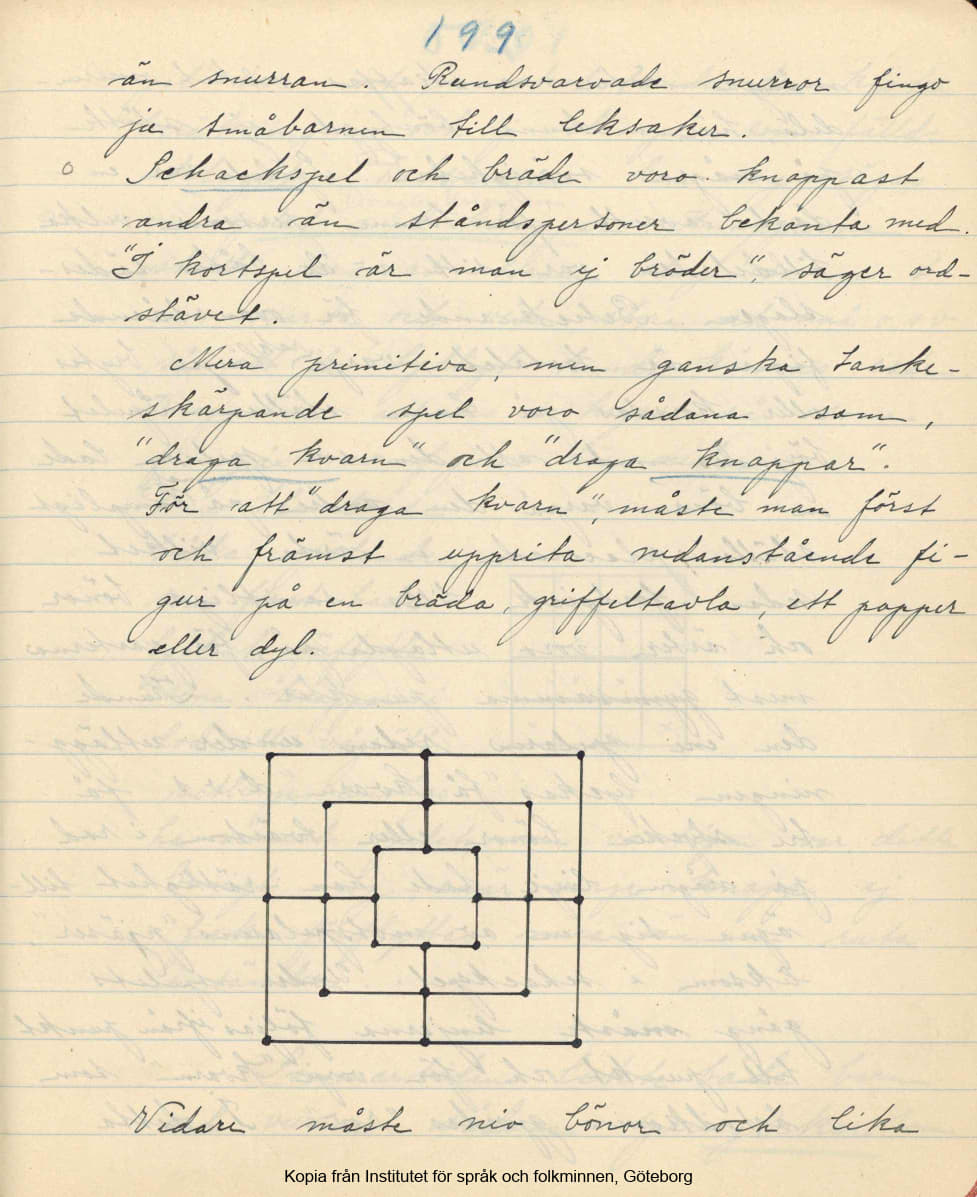 199
än snurran. Rundsvarvade snurror fingo
ju småbarnen till leksaker.
Schackspel och bräde voro knappast
andra än ståndspersoner bekanta med.
"I kortspel är man ej bröder", säger ord-
stävet.
Mera primitiva, men ganska tanke-
skärpande spel voro sådana som,
"draga kvarn" och "draga knappar".
För att "draga kvarn", måste man först
och främst upprita nedanstående fi-
gur på en bräda, griffeltavla, ett papper
eller dyl.
Vidare måste nio bönor och lika
Kopia från Institutet för språk och folkminnen, Göteborg